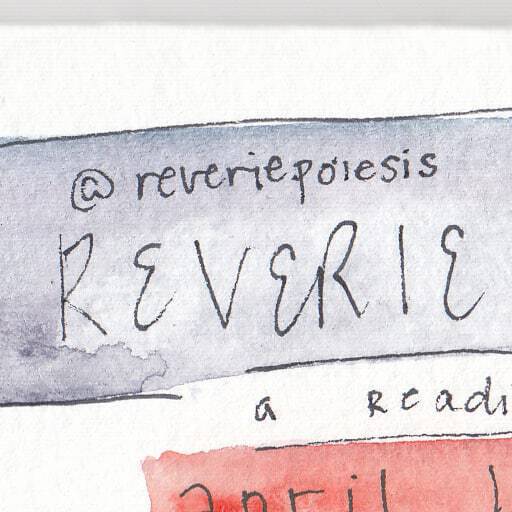 @reveriepoiesis
REVERIE
a Readi
april